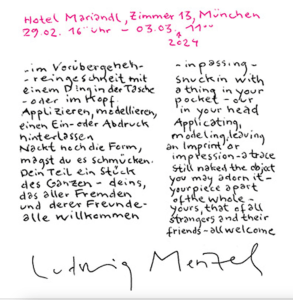 Hotel Mariandl, Zimmer 13, München
29.02. 16°° uhr – 03.03. 11°°
2024
-im Vorübergehen-
-reingeschneit mit
einem Ding in der Tasche
-oder im Kopf.
Applizieren, modellieren,
einen Ein- oder Abdruck
hinterlassen
Nackt noch die Form,
magst du es schmücken.
Dein Teil ein Stück
des Ganzen – deins,
das aller Fremden
und derer Freunde-
alle willkommen
-in passing-
snuckin with
a thing in your
pocket – our
in your head
Applicating,
modeling, leaving
an Imprint or
impression – a trace
Still naked the object
you may adorn it –
your piece a part
of the whole –
yours, that of all
strangers and their
friends – all welcome
Ludwig Menzel